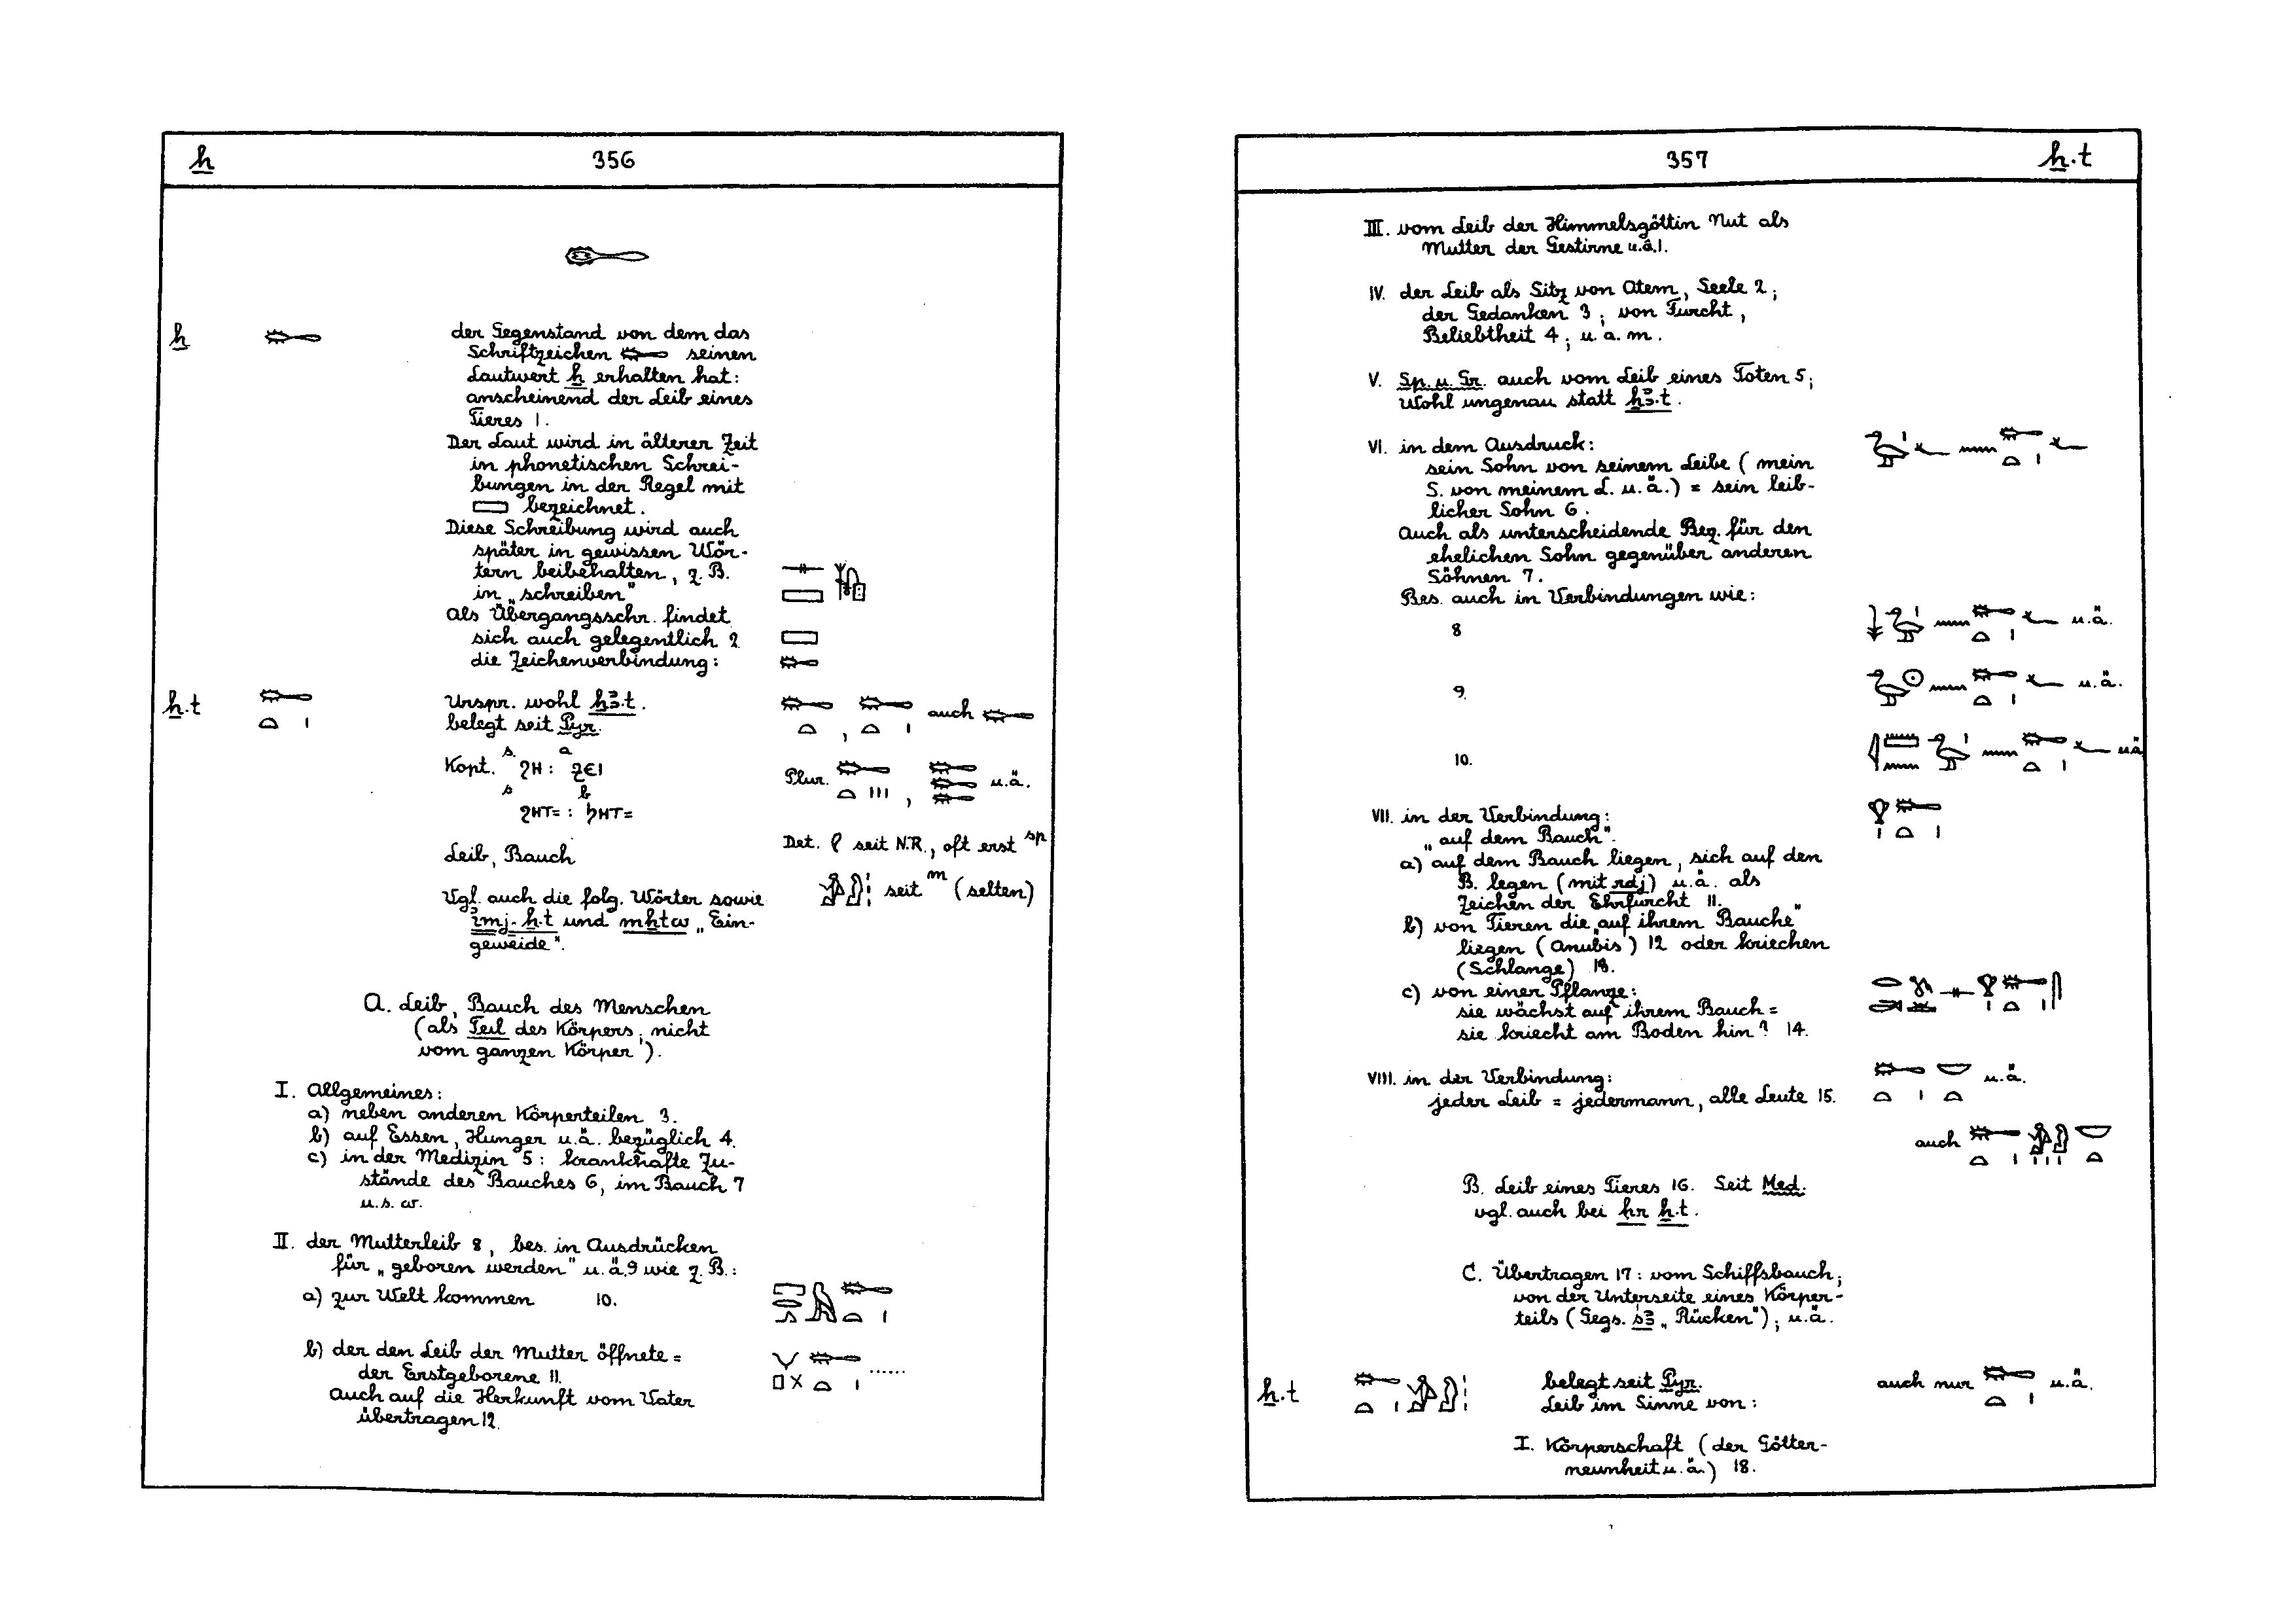 ẖ 356
ẖ
der Gegenstand von dem das
Schriftzeichen 𓄡 seinen
Lautwert ẖ erhalten hat:
anscheinend der Leib eines
Tieres 1.
Der Laut wird in älterer Zeit
in phonetischen Schrei-
bungen in der Regel mit
𓈙 bezeichnet.
Diese Schreibung wird auch
später in gewissen Wör-
tern beibehalten, z. B.
in „schreiben"
Als Übergangsschr. findet
sich auch gelegentlich 2
die Zeichenverbindung:
ẖ.t
Urspr. wohl ẖꜣ.t.
belegt seit Pyr. auch 𓄡
Kopt. S ϩⲏ : A ϩⲉⲓ
S ϩⲏⲧ= : B ϧⲏⲧ=
Plur. u.ä.
Leib, Bauch
Det. seit N.R., oft erst Sp
seit M (selten)
Vgl. auch die folg. Wörter sowie
ỉmj-ẖ.t und mẖtw „Ein-
geweide".
A. Leib, Bauch des Menschen
(als Teil des Körpers; nicht
vom ganzen Körper).
I. Allgemeines:
a) neben anderen Körperteilen 3.
b) auf Essen, Hunger u.ä. bezüglich 4.
c) in der Medizin 5: krankhafte Zu-
stände des Bauches 6, im Bauch 7
u.s.w.
II. der Mutterleib 8, bes. in Ausdrücken
für „geboren werden" u.ä. 9 wie z. B.:
a) zur Welt kommen 10.
b) der den Leib der Mutter öffnete =
der Erstgeborene 11.
Auch auf die Herkunft vom Vater
übertragen 12.
357 ẖ.t
III. vom Leib der Himmelsgöttin Nut als
Mutter der Gestirne u.ä. 1.
IV. der Leib als Sitz von Atem, Seele 2;
der Gedanken 3; von Furcht,
Beliebtheit 4; u. a. m.
V. Sp. u. Gr. auch vom Leib eines Toten 5;
Wohl ungenau statt ẖꜣ.t.
VI. in dem Ausdruck:
sein Sohn von seinem Leibe (mein
S. von meinem L. u.ä.) = sein leib-
licher Sohn 6.
Auch als unterscheidende Bez. für den
ehelichen Sohn gegenüber anderen
Söhnen 7.
Bes. auch in Verbindungen wie:
8 u.ä.
9. u.ä.
10. u.ä
VII. in der Verbindung:
„auf dem Bauch".
a) auf dem Bauch liegen, sich auf den
B. legen (mit rdj) u.ä. als
Zeichen der Ehrfurcht 11.
b) von Tieren die „auf ihrem Bauche"
liegen (Anubis) 12 oder kriechen
(Schlange) 13.
c) von einer Pflanze:
sie wächst auf ihrem Bauch =
sie kriecht am Boden hin? 14.
VIII. in der Verbindung: u.ä.
jeder Leib = jedermann, alle Leute 15.
auch
B. Leib eines Tieres 16. Seit Med.
vgl. auch bei ẖr ẖ.t.
C. Übertragen 17: vom Schiffsbauch;
von der Unterseite eines Körper-
teils (Gegs. sꜣ „Rücken"); u.ä.
ẖ.t
belegt seit Pyr. auch nur u.ä.
Leib im Sinne von:
I. Körperschaft (der Götter-
neunheit u.ä.) 18.